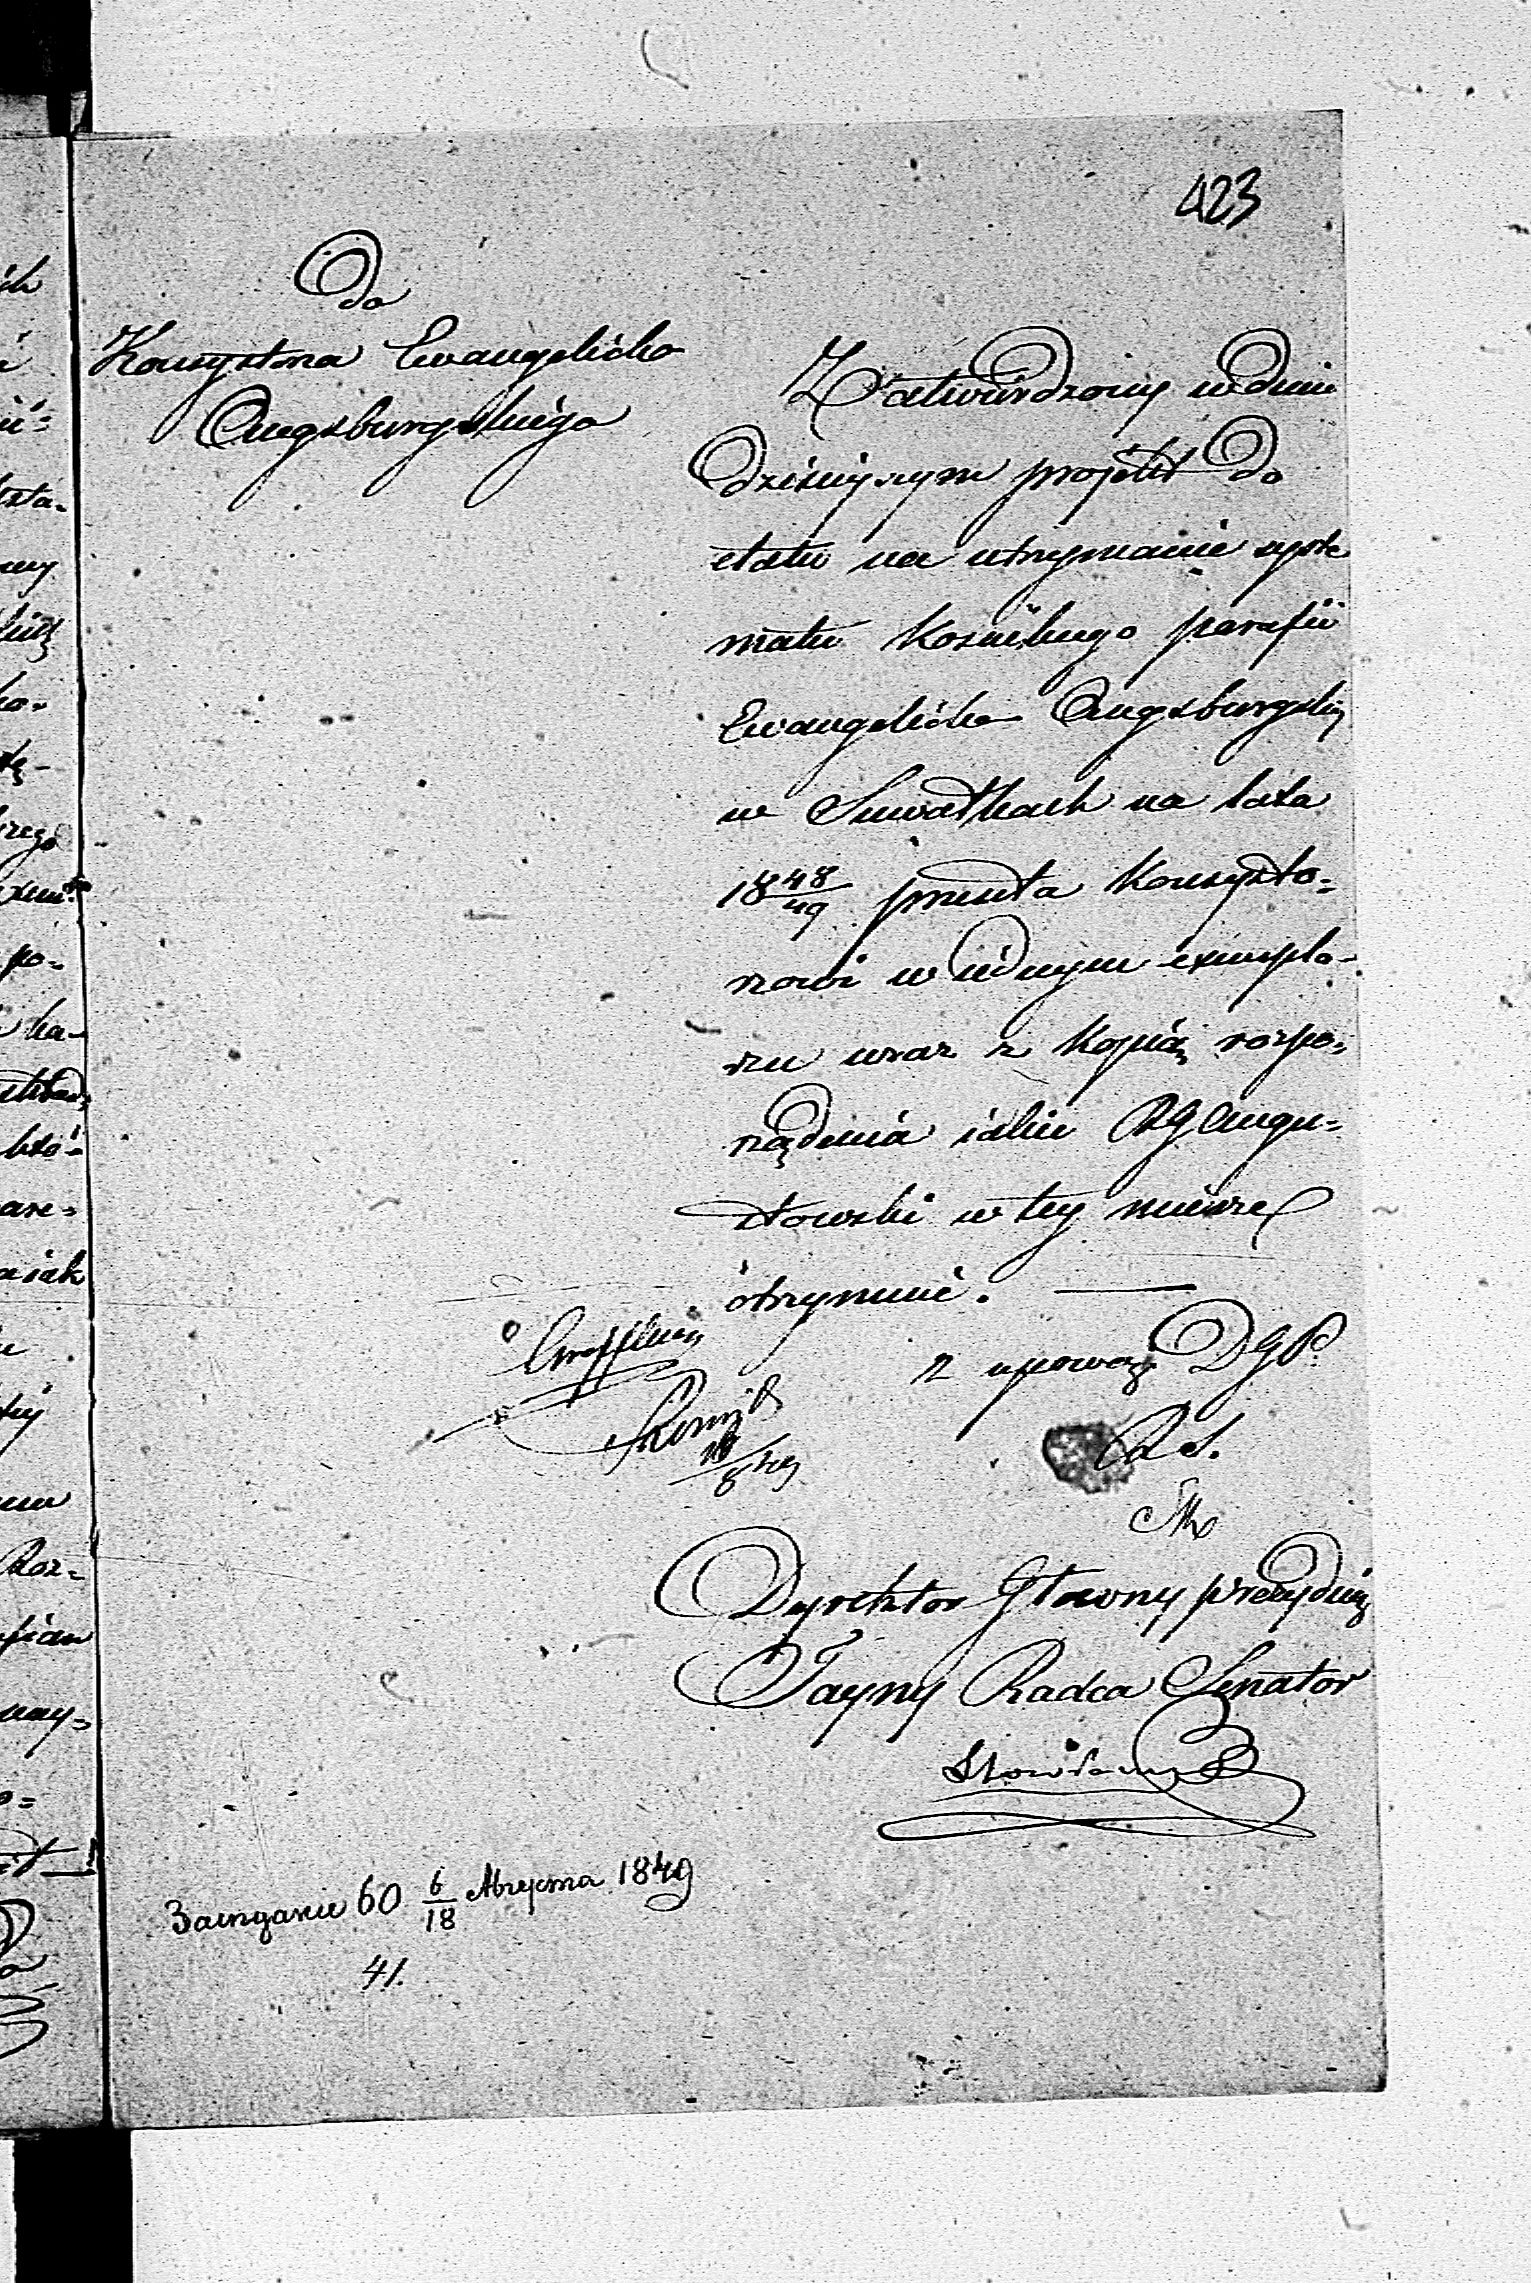 423
Do
Konsystorza Ewangelicko
Augsburgskiego
Zatwierdzony w dniu
dzisieyszym projekt do
etatu na utrzymanie syste
matu Kościelnego parafii
Ewangelicko Augsburgskiey
w Suwałkach na lata
18 48/49 przesyła Konsysto=
rzowi w iednym exempla-
rzu wraz z kopią rozpo=
rządzenia iakie RG Augu=
stowski w tey mierze
otrzymuie.
z upoważ DGP.
R S.
Dyrektor Główny prezyduią
Tayny Radca Senator
60 6/18 1849
41.